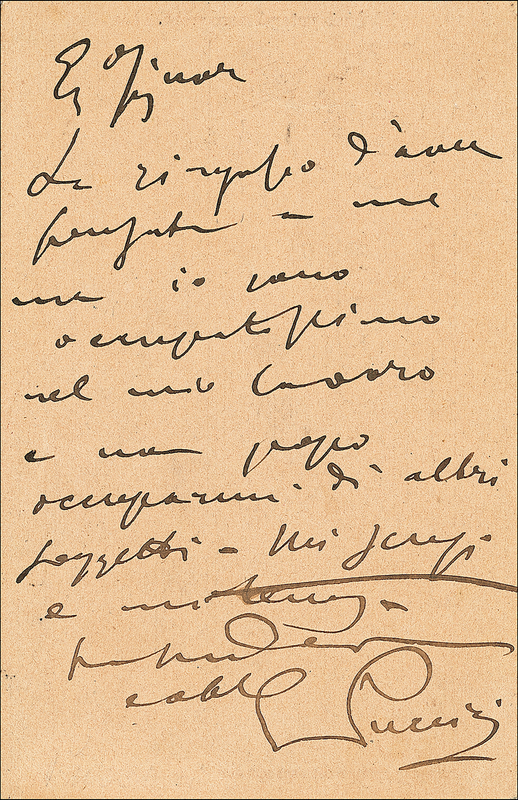 Eg Signor
La ringrazio d'aver
pensato a me
ma io sono
occupatissimo
nel mio lavoro
e non posso
occuparmi di altri
soggetti - Mi scusi
e mi
GPuccini